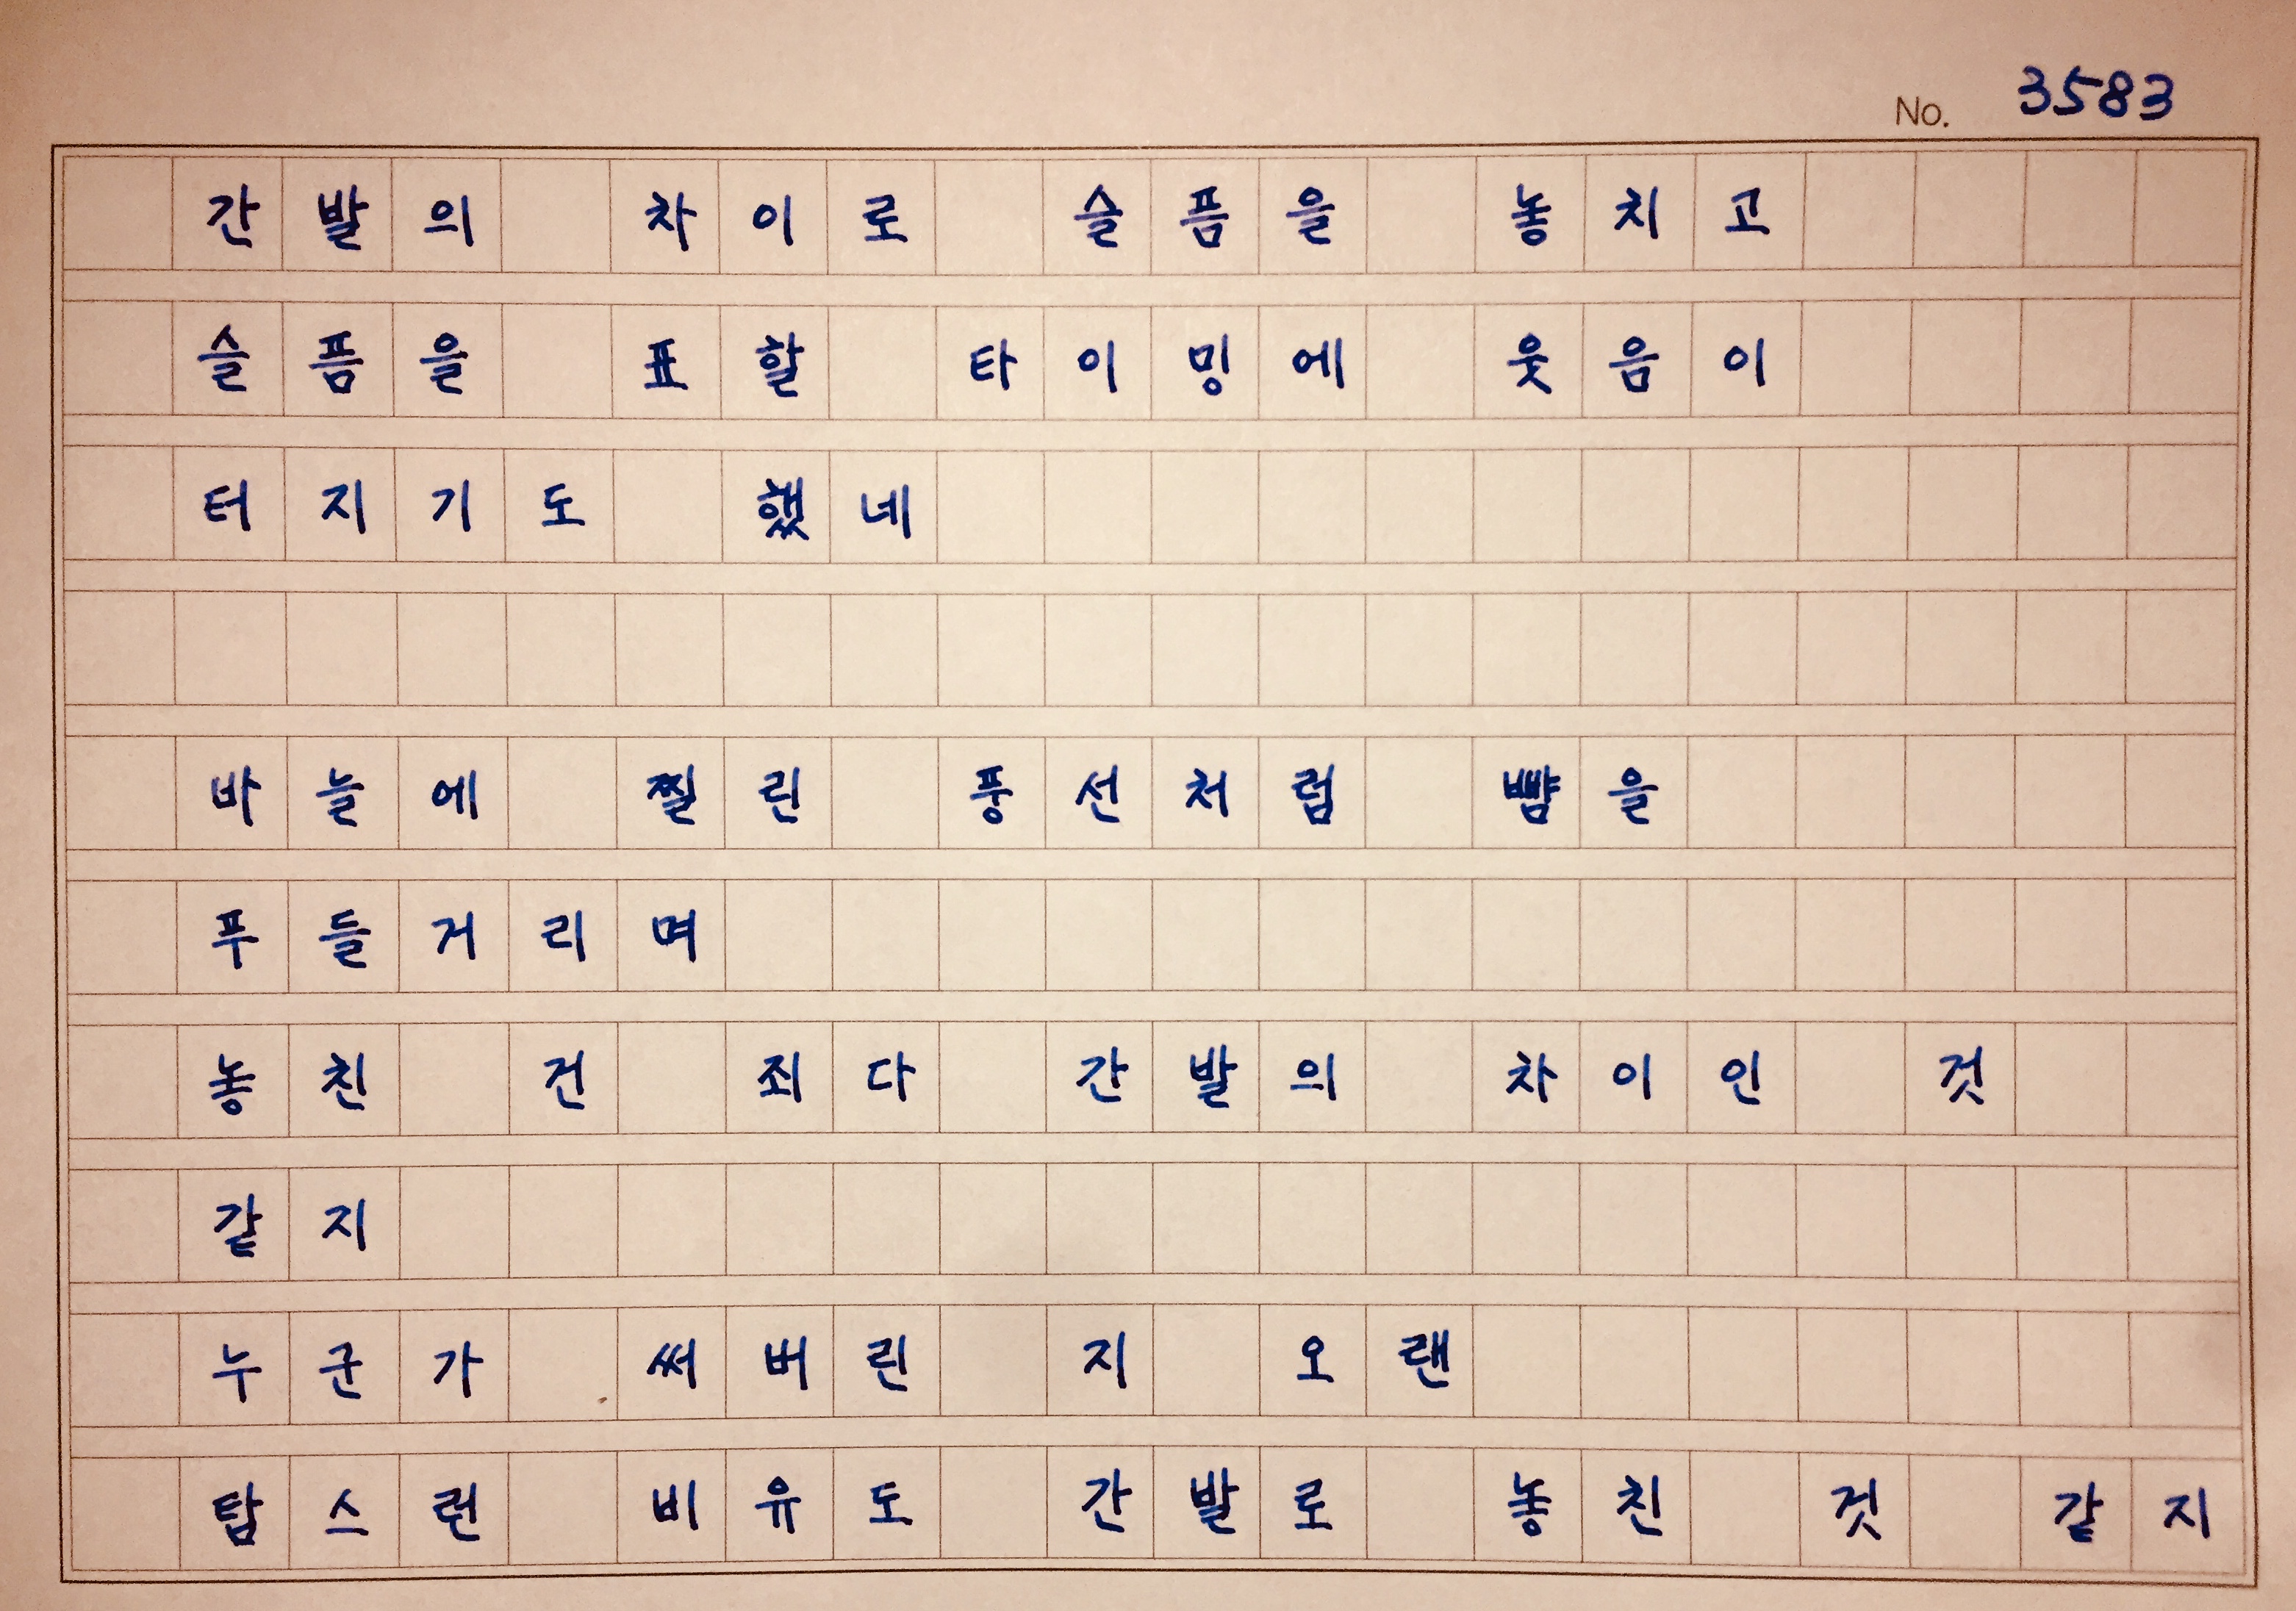 No. 3583
간발의 차이로 슬픔을 놓치고
슬픔을 표할 타이밍에 웃음이
터지기도 했네
바늘에 찔린 풍선처럼 뺨을
푸들거리며
놓친 건 죄다 간발의 차이인 것
같지
누군가 써버린 지 오랜
탑스런 비유도 간발로 놓친 것 같지